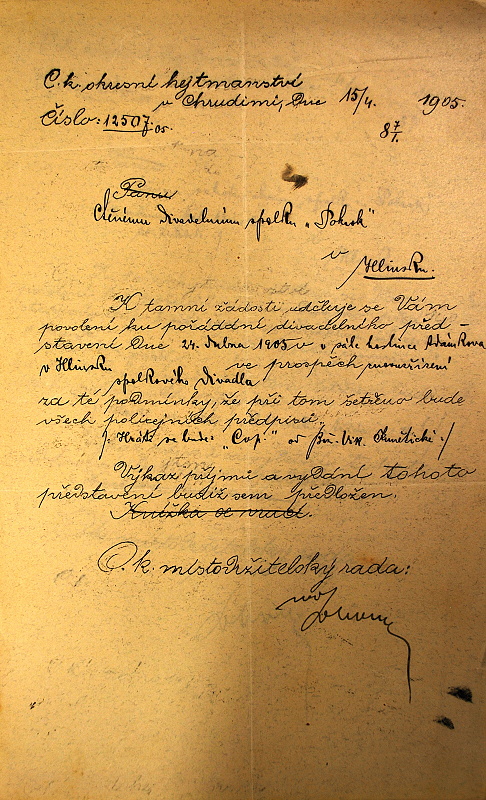 C. k. okresní hejtmanství
v Chrudimi, dne 15/4. 1905.
Číslo: 12507/05.
Panu
Ctěnému divadelnímu spolku „Pokrok"
v
Hlinsku.
K tamní žádosti uděluje se Vám
povolení ku pořádání divadelního před-
stavení dne 24. dubna 1905 v sále hostince Adámkova
v Hlinsku ve prospěch
spolkového divadla
za té podmínky, že při tom šetřeno bude
všech policejních předpisů.
/: Hráti se bude: „Cop" od Kunětické :/
Výkaz příjmů a vydání tohoto
představení budiž sem předložen.
Knížka se vrací.
C. k. místodržitelský rada: